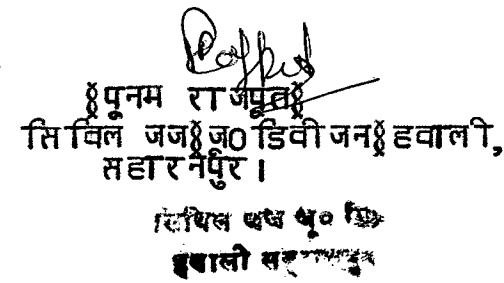 §पूनम राजपूत§
सिविल जज§जू0 डिवीजन§हवाली,
सहारनपुर।
सिविल जज जू०
हवाली